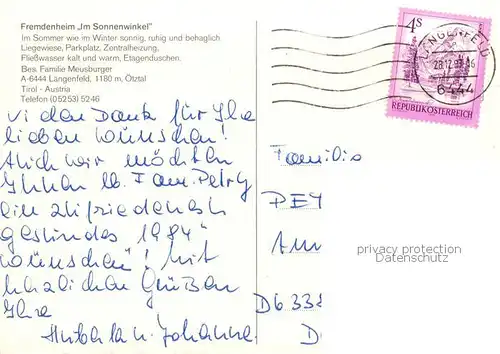 Fremdenheim „Im Sonnenwinkel"
Im Sommer wie im Winter sonnig, ruhig und behaglich
Liegewiese, Parkplatz, Zentralheizung,
Fließwasser kalt und warm, Etagenduschen.
Bes. Familie Meusburger
A-6444 Längenfeld, 1180 m. Ötztal
Tirol - Austria
Telefon (05253) 5246
vielen Dank für Ihre
lieben Wünschen!
Auch wir möchten
Ihnen lb. Fam. Petry
ein zufriedenes
gesundes 1984"
wünschen! Mit
herzlichen Grüßen
Ihre
Huberta u. Johanna
4S
REPUBLIK ÖSTERREICH
LÄNGENFELD
28.12.83
6444
Familie
PET
Am
D6338
D
privacy protection
Datenschutz